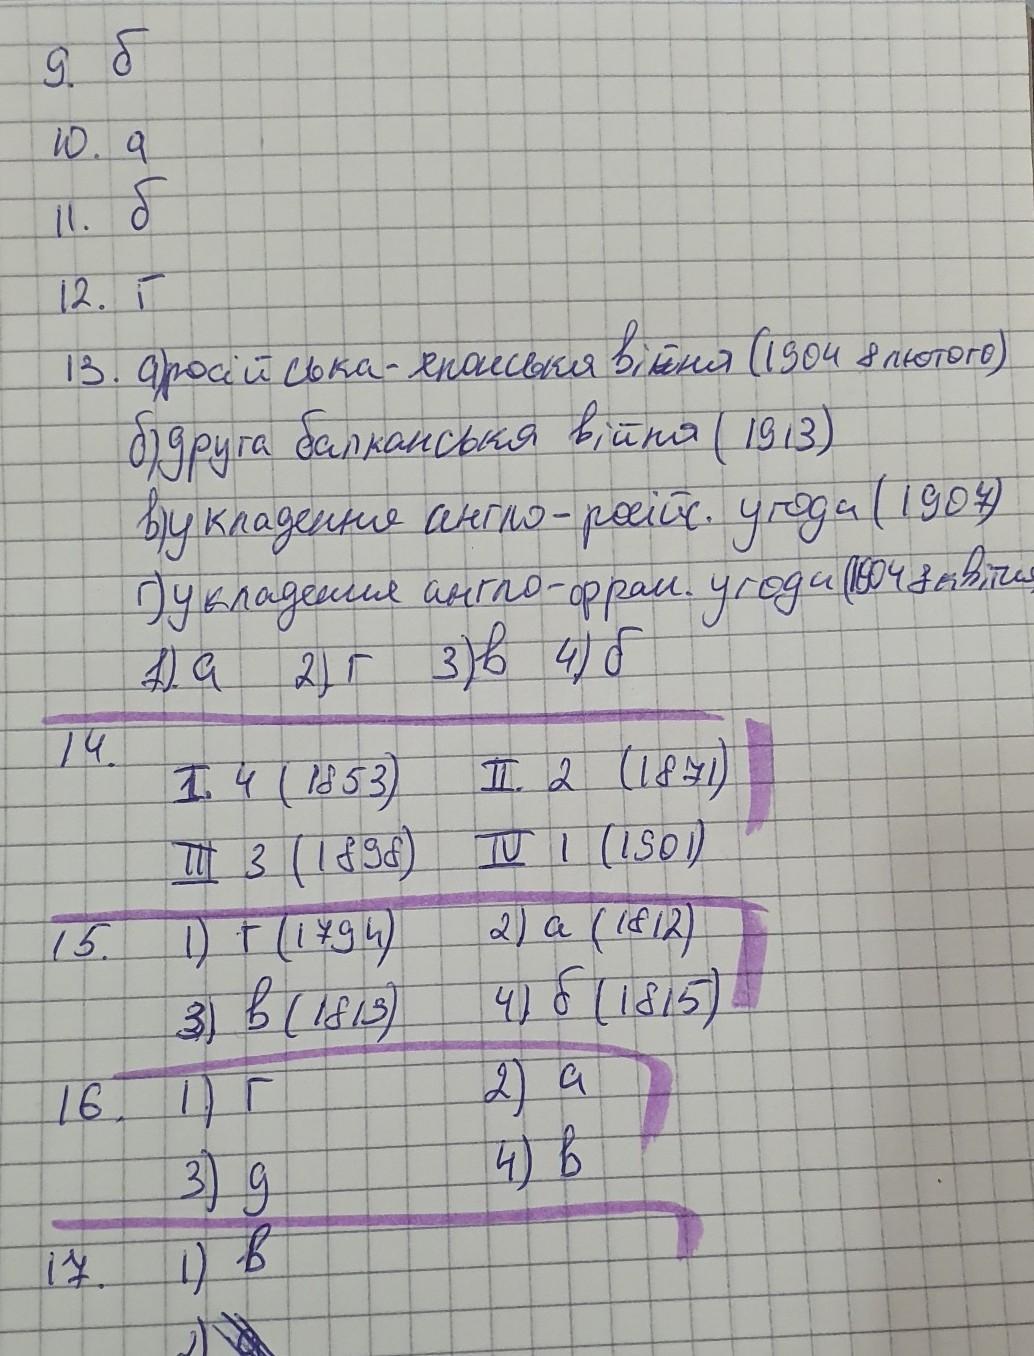 9. б
10. а
11. б
12. г
13. а)російська-японська війня (1904 8 лютого)
б)друга балканська війня (1913)
в)укладення англо-російс. угода (1907)
г)укладення англо-фран. угоди (1904 8 квітня
1) а 2) г 3) в 4) б
14.
I. 4 (1853) II. 2 (1871)
III 3 (1898) IV 1 (1901)
15. 1) г (1794) 2) а (1812)
3) в (1813) 4) б (1815)
16. 1) г 2) а
3) д 4) в
17. 1) в